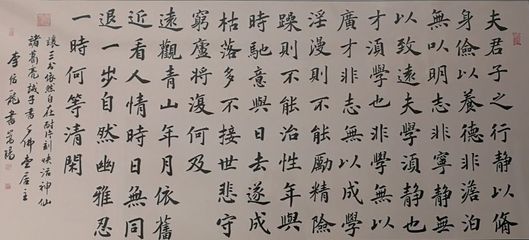 夫君子之行靜以脩
身儉以養德非澹泊
無以明志非寧靜無
以致遠夫學湏靜也
才湏學也非學無以
廣才非志無以成學
淫漫則不能勵精險
躁則不能治性年與
時馳意與日去遂成
枯落多不接世悲守
窮廬將復何及
遠觀青山年月依舊
近看人情時日無同
退一步自然幽雅忍
一時何等清閑
讓三分依然自在耐片刻快活神仙
諸葛亮誡子書